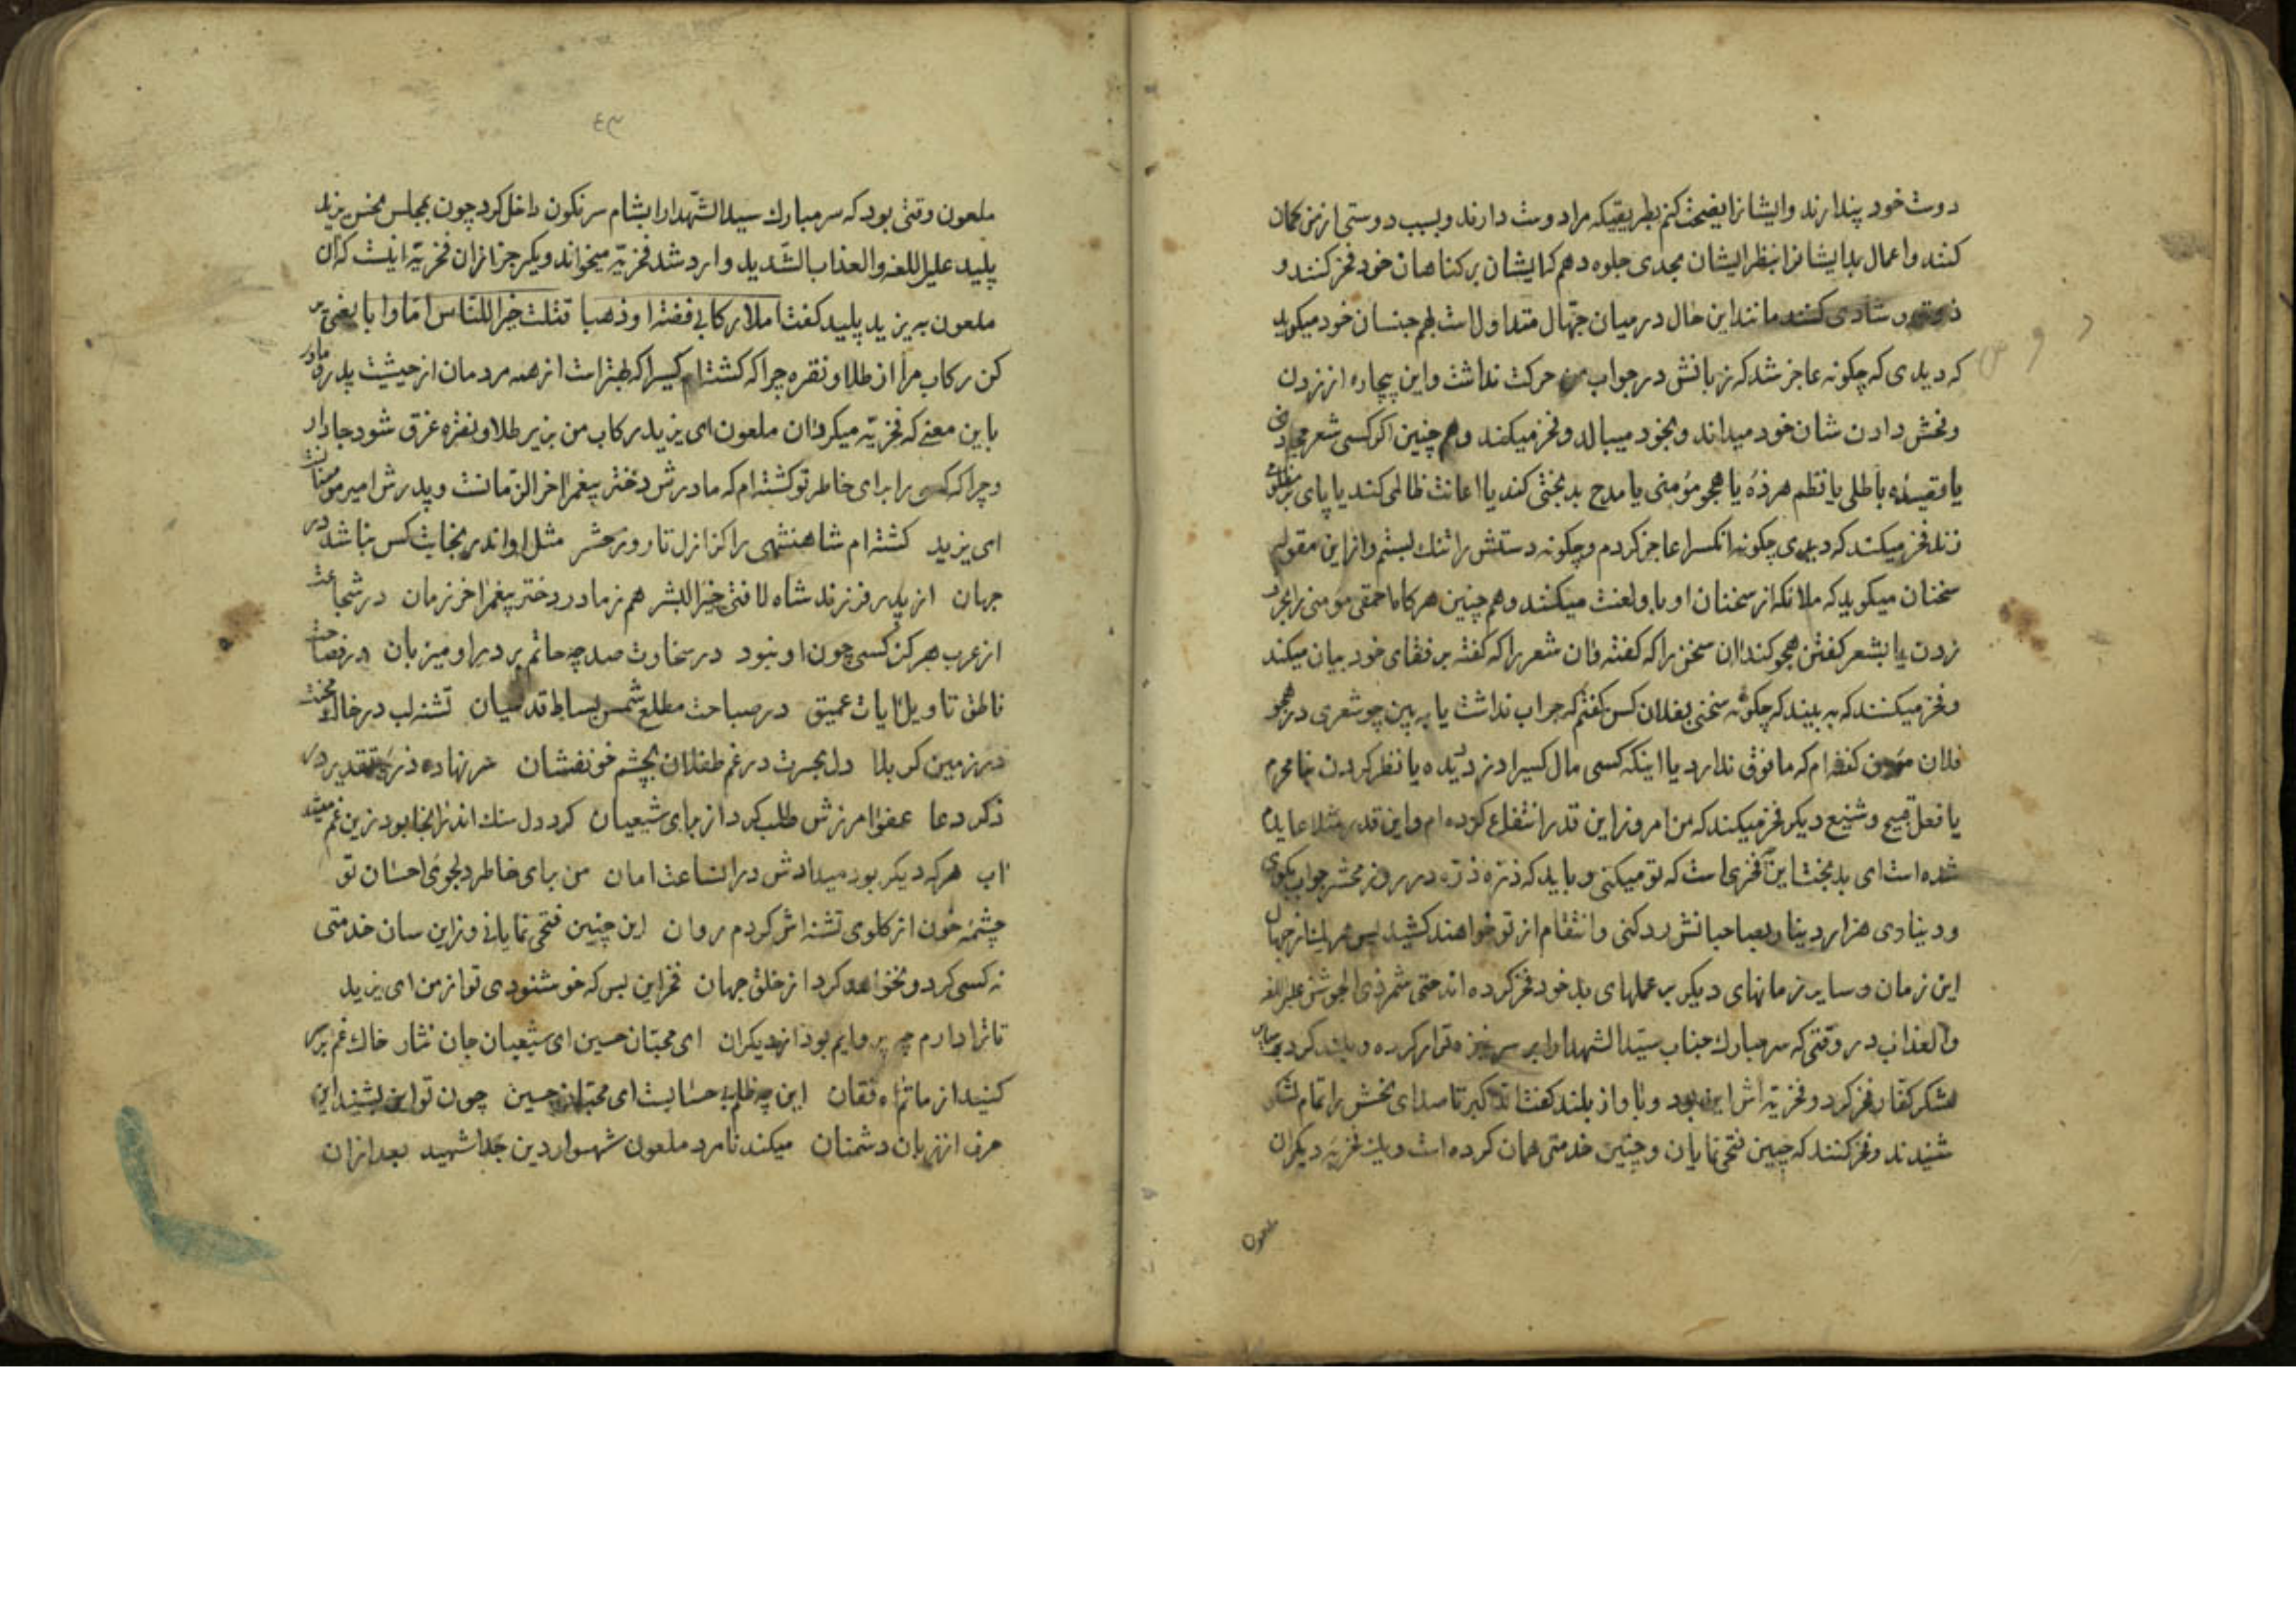 دوست خود پندارند و ایشانرا نصیحت کنم بطریقیکه مرا دوست دارند و بسبب دوستی از من کمان
کنند و اعمال بد ایشانرا بنظر ایشان بحدی جلوه دهم که ایشان بر کناهان خود فخر کنند و
شادی کنند مانند این حال در میان جهّال متداول است بهم جنسان خود میکوید
که دیدی که چکونه عاجز شد که زبانش در جواب من حرکت نداشت و این بیچاره از زدن
و فحش دادن شان خود میداند و بخود میبالد و فخر میکند و هم چنین اکر کسی شعر
یا قصیدۀ باطلی یا نظم هرزۀ یا هجو مؤمنی یا مدح بدبختی کند یا اعانت ظالمی کند یا پای بر مظلومی
زند فخر میکند که دیدی چکونه انکسرا عاجز کردم و چکونه دستش را تنک بستم و از این مقوله
سخنان میکوید که ملائکه از سخنان او باو لعنت میکنند و هم چنین هرکاه احمقی مومنی را بحرف
زدن یا بشعر کفتن هجو کند ان سخن را که کفته و ان شعر را که کفته بر رفقای خود بیان میکند
و فخر میکنند که به بیند که چکونه سخنی بفلان کس کفتم که جواب نداشت یا به بین چو شعری در هجو
فلان مؤمن کفته ام که مافوق ندارد یا اینکه کسی مال کسیرا دزدیده یا نظر کردن بنا محرم
یا فعل قبیح و شنیع دیکر فخر میکند که من امروز این قدر انتفاع کرده ام و این قدر مثلا عایدم
شده است ای بدبخت این فخری است که تو میکنی و باید که ذره ذره در روز محشر جواب بکوی
و دیناری هزار دینار بصاحبانش رد کنی و انتقام از تو خواهند کشید پس هر اینه از جهال
این زمان و سایر زمانهای دیکر بر عملهای بد خود فخر کرده اند حتی شمر ذی الجوشن علیه اللعنه
و العذاب در وقتی که سر مبارک جناب سیّد الشهدا را بر سر نیزه قرار کرده و بلند کرد
لشکر کفار فخر کرد و فخریّه اش این بود و باواز بلند کفت الله اکبر تا صدای نحسش را تمام لشکر
شنیدند و فخر کنند که چنین فتحی نمایان و چنین خدمتی همان کرده است و یک فخریّه دیکر ان
ملعون
٤٣
ملعون وقتی بود که سر مبارک سید الشّهدا را بشام سرنکون داخل کرد چون بمجلس نحس یزید
پلید علیه اللعنه و العذاب الشّدید وارد شد فخریّه میخواند و یکی جز از ان فخریّه اینست که ان
ملعون به یزید پلید کفت املا رکابی فضّة او ذهبا قتلت خیر النّاس امّا و ابا یعنی پر
کن رکاب مرا از طلا و نقره چرا که کشته ام کسیرا که بهتر است از همه مردمان از حیثیت پدر و مادر
باین معنی که فخریّه میکرد ان ملعون ای یزید رکاب من بزیر طلا و نقره غرق شود جا دارد
و چرا که کسی را برای خاطر تو کشته ام که مادرش دختر پیغمبر اخر الزّمانست و پدرش امیر مومنان
ای یزید کشته ام شاهنشهی را کز ازل تا روز حشر مثل او اندر نجابت کس نباشد در
جهان از پدر فرزند شاه لا فتی خیر البشر هم ز مادر دختر پیغمبر اخر زمان در شجاعت
از عرب هرکز کسی چون او نبود در سخاوت صد چه حاتم بر در او میزبان در فصاحت
ناطق تاویل ایات عمیق در صباحت مطلع شمس بساط قدسیان تشنه لب در خاک محنت
در زمین کربلا دل بحسرت در غم طفلان بچشم خونفشان سر نهاده در
ذکر دعا عفو امرزش طلب کرد از برای شیعیان کرد دل سنک اندر انجا بود زین غم میشد
اب هرکه دیکر بود میدادش در انساعت امان من برای خاطر دلجوئی احسان تو
چشمه خون از کلوی تشنه اش کردم روان این چنین فتحی نمایانی و زاین سان خدمتی
نه کسی کرد و نخواهد کرد از خلق جهان فخر این بس که خوشنودی تو از من ای یزید
تا ترا دارم چه پروایم بود از دیکران ای محبّان حسین ای شیعیان جان نثار خاک غم بر سر
کنید از ماتم اه فغان این چه ظلم بی حسابست ای محبّان حسین چون توان بشنید این
حرف از زبان دشمنان میکند نامرد ملعون شهسوار دین جدا شهید بعد از ان